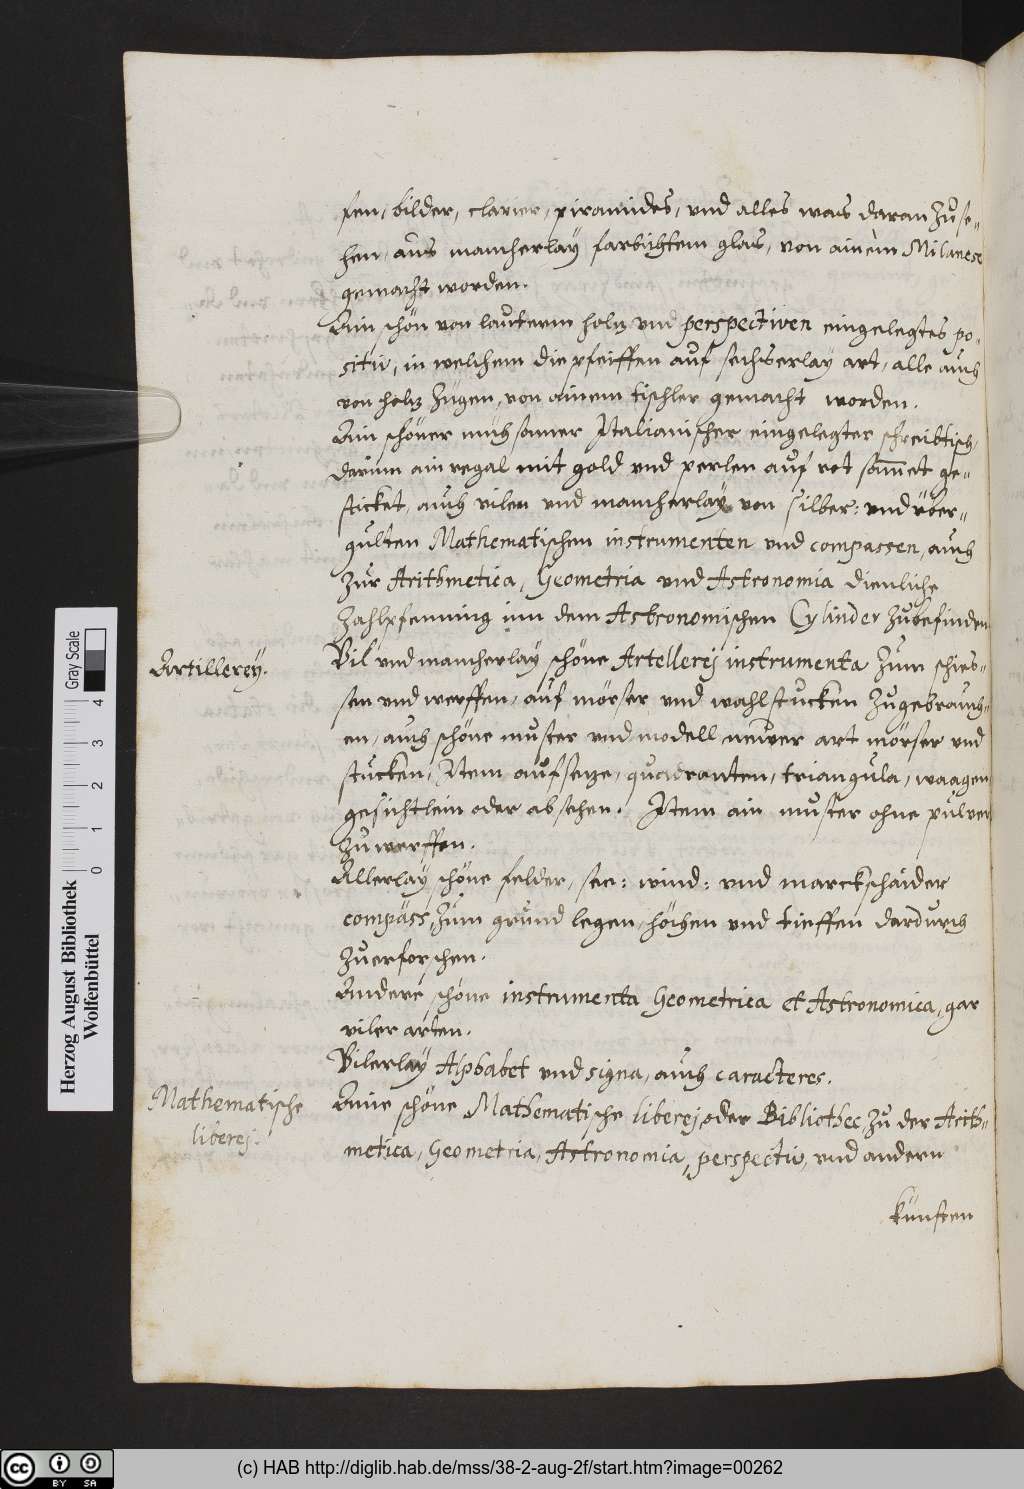 sen, bilder, clavier, piramides, und alles was daran zu se-
hen, aus mancherlay farbichtem glas, von ainem Milanese
gemacht worden.
Ain schön von lauterm holz und perspectiven eingelegtes po-
sitiv, in welchem die pfeiffen auf sechserlay art, alle auch
von holz zügen, von ainem tischler gemacht worden.
Ain schöner mühsamer Italianischer eingelegter schreibtisch,
darinn ain regal mit gold und perlen auf rot sam̄et ge-
sticket, auch vilen und mancherlay von silber: und über-
gulten Mathematischen instrumenten und compassen, auch
zur Arithmetica, Geometria und Astronomia dienliche
Zahlpfenning inn dem Astronomischen Cylinder zubefinden
Artillerey.
Vil und mancherlay schöne Artellerej instrumenta zum schies-
sen und werffen, auf mörser und wahlstucken zugebrauch-
en, auch schöne muster und modell newer art mörser und
stucken, Item aufseze, quadranten, triangula, waagen
gesichtlein oder absehen. Item ain muster ohne pulver
zuwerffen.
Allerlay schöne felder, see: wind: und marckschaider
compäss, zum grund legen, höhen und tieffen dardurch
zuerforschen.
Andere schöne instrumenta Geometrica et Astronomica, gar
viler arten.
Vilerlay Alphabet und signa, auch caracteres.
Mathematische
liberej.
Aine schöne Mathematische liberej oder Bibliothec, zu der Arith-
metica, Geometria, Astronomia, perspectiv, und andern
künsten
Herzog August Bibliothek
Wolfenbüttel
0 1 2 3 4
Gray Scale
cc BY SA
(c) HAB http://diglib.hab.de/mss/38-2-aug-2f/start.htm?image=00262